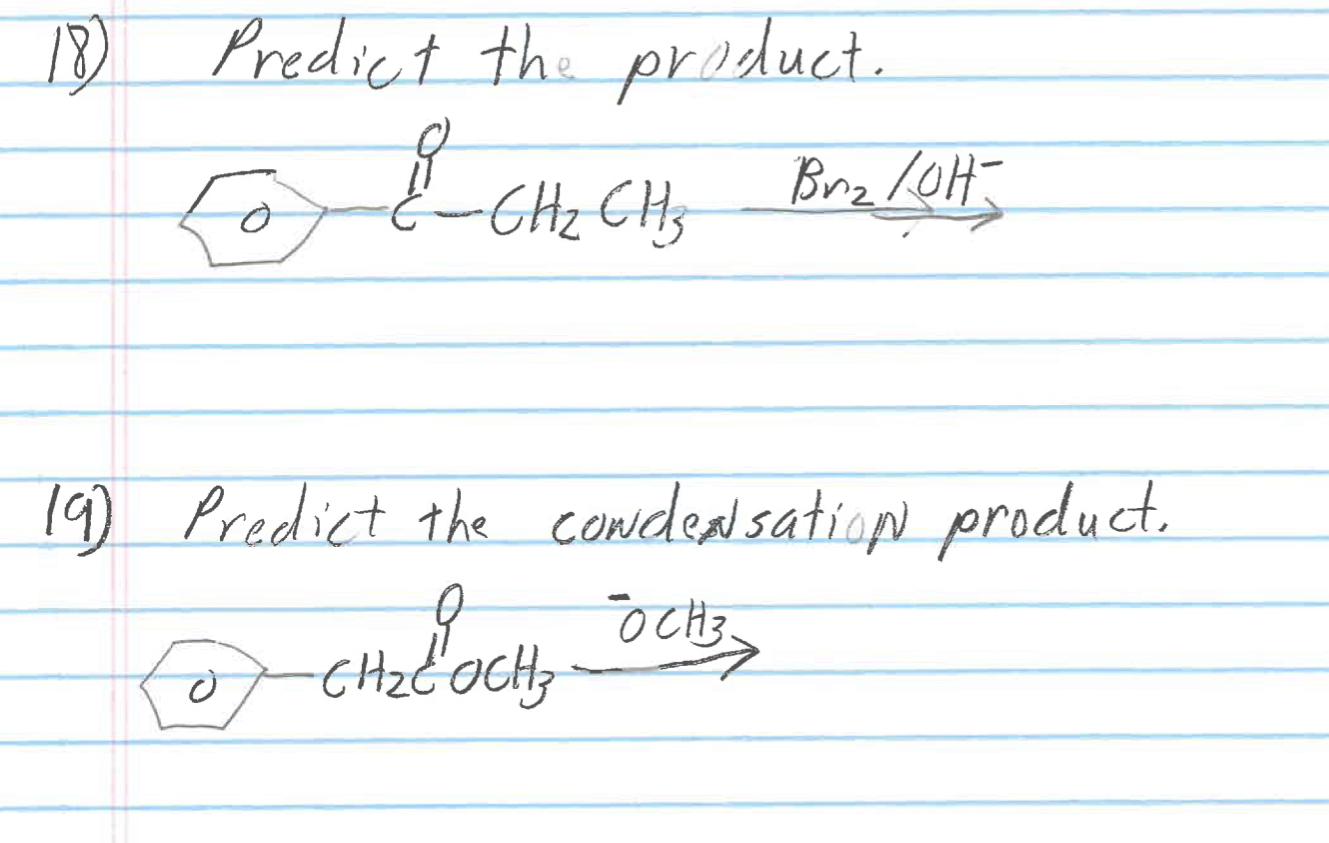 18) Predict the product.
O
O -C-CH₂CH₃ Br₂/OH⁻
19) Predict the condensation product.
O ⁻OCH₃
O -CH₂COCH₃